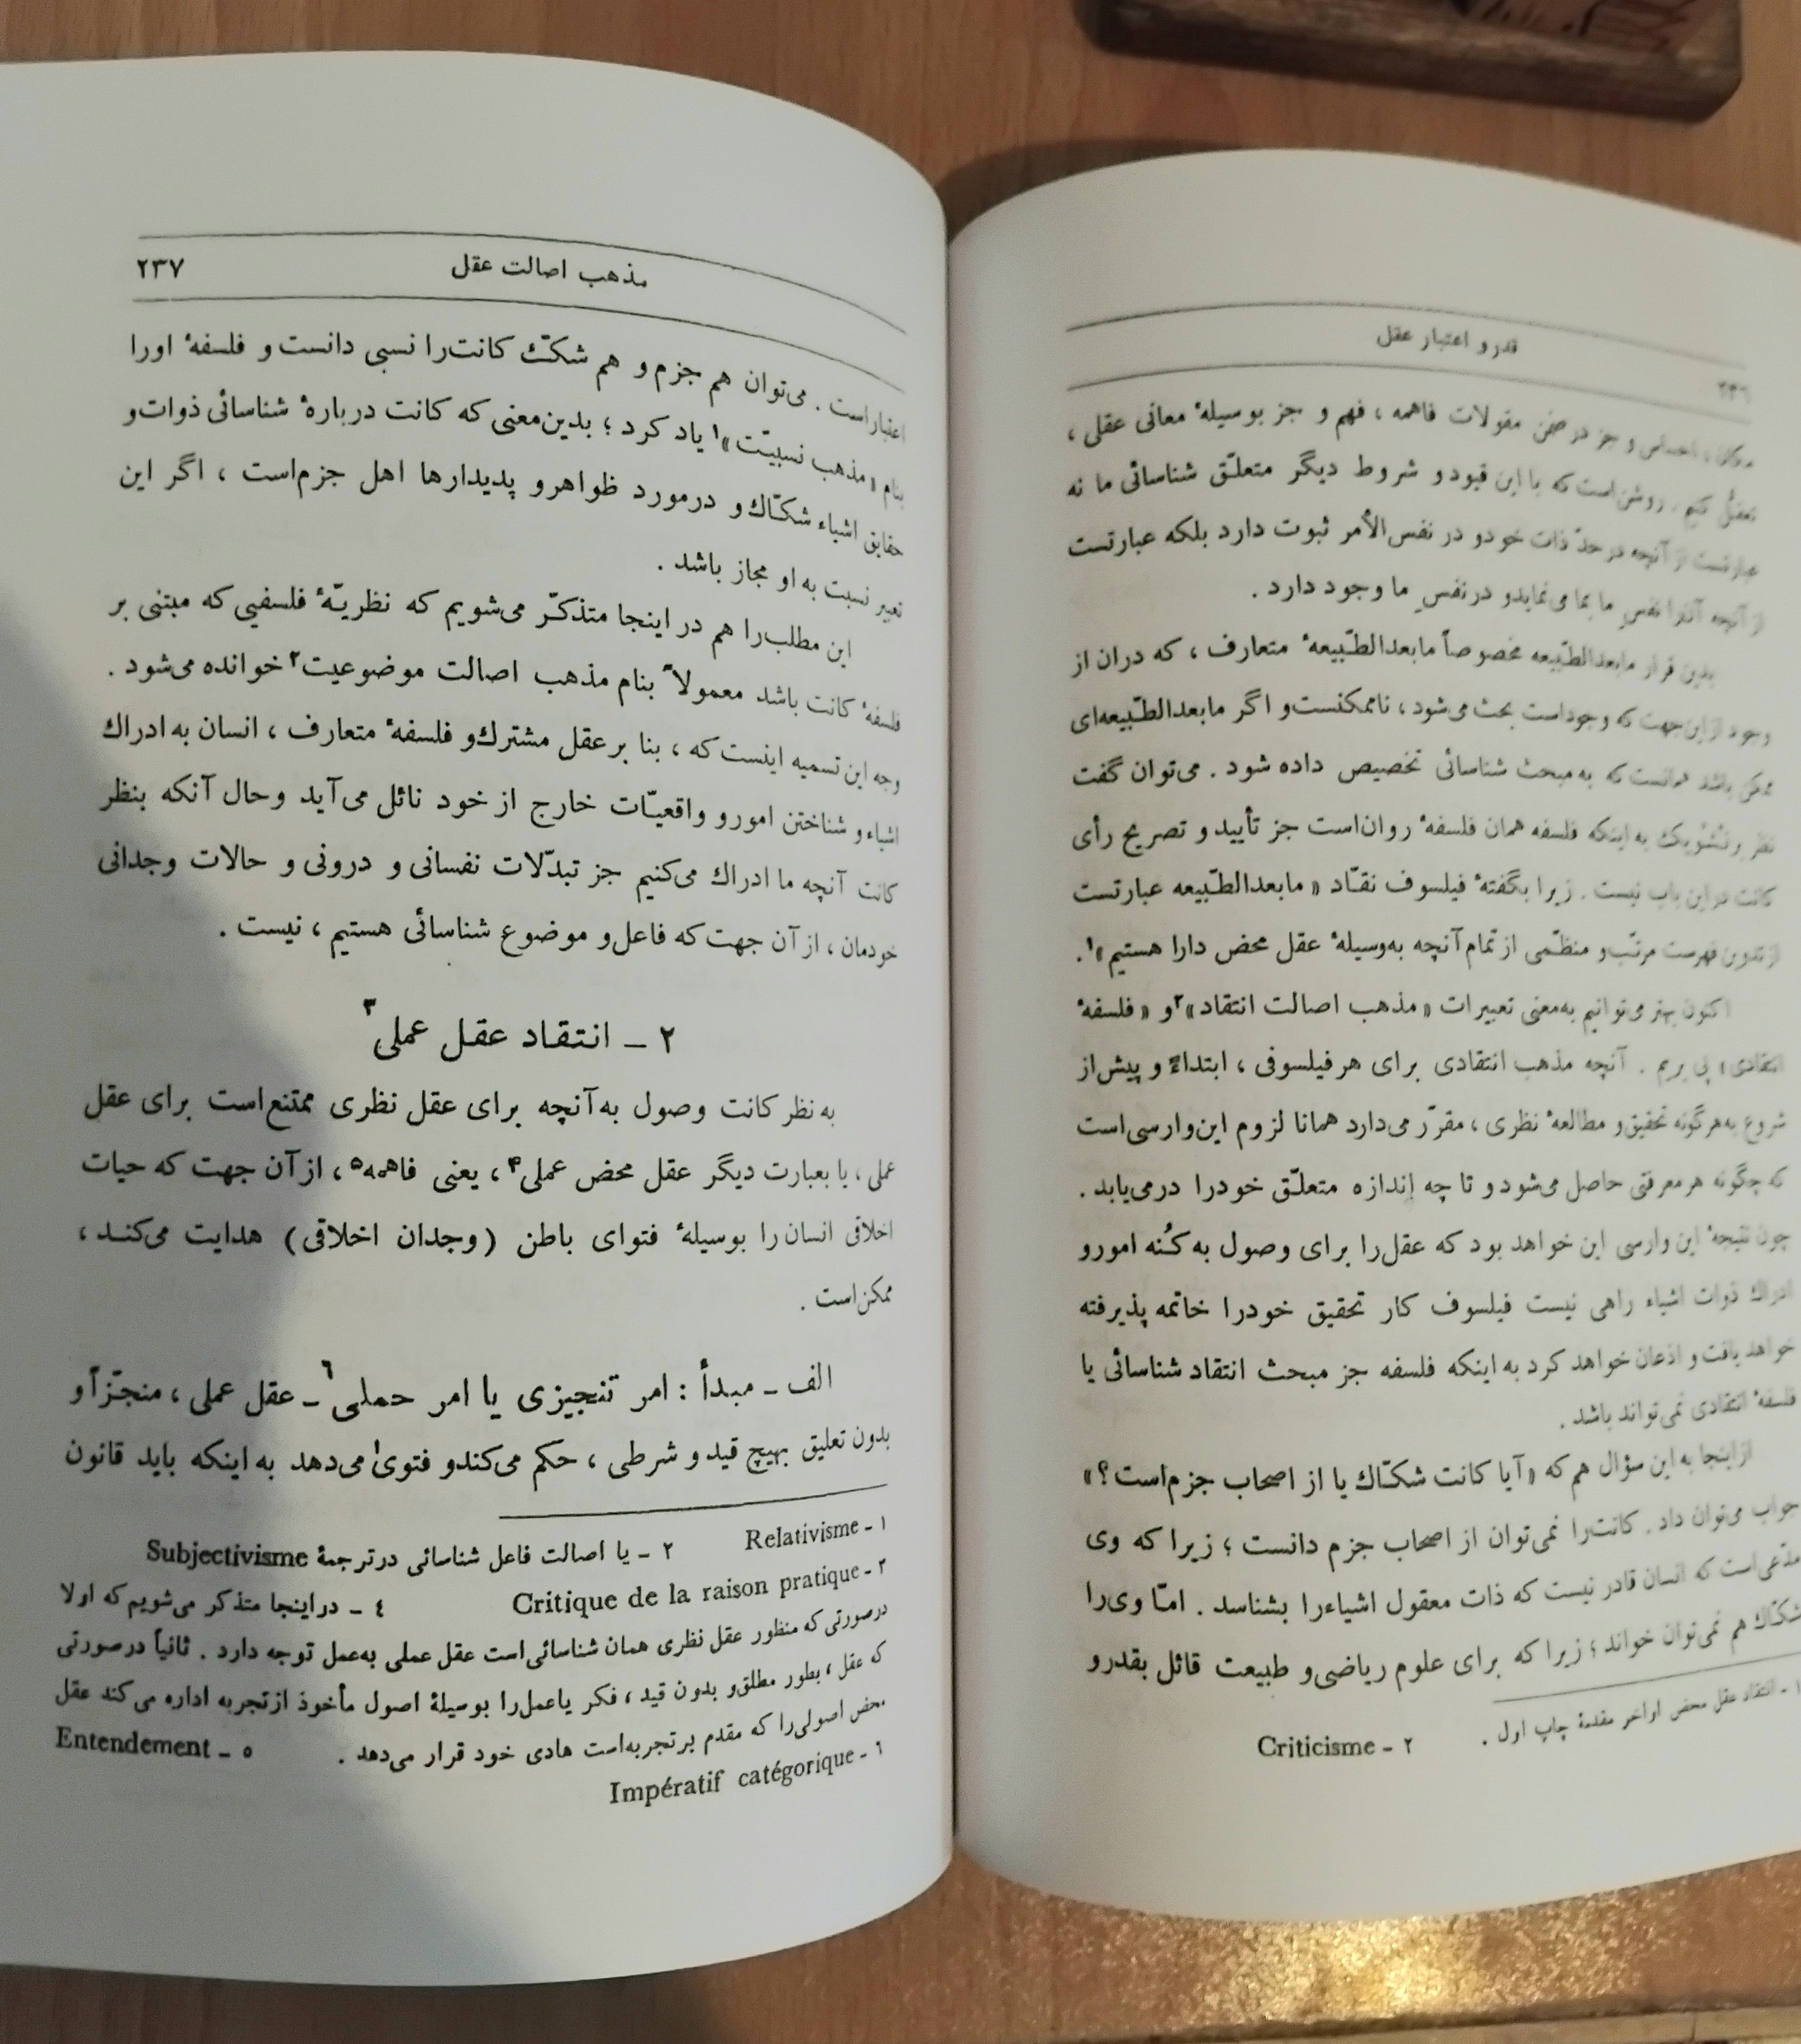 قدر و اعتبار عقل
۲۳۶
مکان، احساس و جز در ضمن مقولات فاهمه ، فهم و جز بوسیلهٔ معانی عقلی ،
تعقّل کنیم . روشن‌است که با این قیود و شروط دیگر متعلّق شناسائی ما نه
عبارتست از آنچه در حدّ ذات خود و در نفس‌الأمر ثبوت دارد بلکه عبارتست
از آنچه آنرا نفسِ ما بما می‌نماید و در نفسِ ما وجود دارد .
بدین قرار مابعدالطّبیعه مخصوصاً مابعدالطّبیعهٔ متعارف ، که دران از
وجود از این‌جهت که وجود است بحث می‌شود ، ناممکنست و اگر مابعدالطّبیعه‌ای
ممکن باشد همانست که به مبحث شناسائی تخصیص داده شود . می‌توان گفت
نظر رنُنْویک به اینکه فلسفه همان فلسفهٔ روان‌است جز تأیید و تصریح رأی
کانت در این باب نیست . زیرا بگفتهٔ فیلسوف نقّاد «مابعدالطّبیعه عبارتست
از تدوین فهرست مرتّب و منظّمی از تمام آنچه به‌وسیلهٔ عقل محض دارا هستیم»۱.
اکنون بهتر می‌توانیم به‌معنی تعبیرات «مذهب اصالت انتقاد»۲ و «فلسفهٔ
انتقادی» پی بریم . آنچه مذهب انتقادی برای هر فیلسوفی ، ابتداءً و پیش از
شروع به هرگونه تحقیق و مطالعهٔ نظری ، مقرّر می‌دارد همانا لزوم این‌وارسی‌است
که چگونه هر معرفتی حاصل می‌شود و تا چه اندازه متعلّق خود را درمی‌یابد .
چون نتیجهٔ این وارسی این خواهد بود که عقل‌را برای وصول به کُنه امور و
ادراك ذوات اشیاء راهی نیست فیلسوف کار تحقیق خودرا خاتمه پذیرفته
خواهد یافت و اذعان خواهد کرد به اینکه فلسفه جز مبحث انتقاد شناسائی یا
فلسفهٔ انتقادی نمی‌تواند باشد .
از اینجا به این سؤال هم که «آیا کانت شکّاك یا از اصحاب جزم‌است؟»
جواب می‌توان داد . کانت‌را نمی‌توان از اصحاب جزم دانست ؛ زیرا که وی
مدّعی‌است که انسان قادر نیست که ذات معقول اشیاءرا بشناسد . امّا وی‌را
شکّاك هم نمی‌توان خواند ؛ زیرا که برای علوم ریاضی و طبیعت قائل بقدر و
۱ - انتقاد عقل محض اواخر مقدمهٔ چاپ اول .
۲ - Criticisme
مذهب اصالت عقل
۲۳۷
اعتبار است . می‌توان هم جزم و هم شكّ کانت‌را نسبی دانست و فلسفهٔ اورا
بنام «مذهب نسبیّت»۱ یاد کرد ؛ بدین‌معنی که کانت دربارهٔ شناسائی ذوات و
حقایق اشیاء شکّاك و درمورد ظواهر و پدیدارها اهل جزم‌است ، اگر این
تعبیر نسبت به او مجاز باشد .
این مطلب‌را هم در اینجا متذکّر می‌شویم که نظریّهٔ فلسفیی که مبتنی بر
فلسفهٔ کانت باشد معمولاً بنام مذهب اصالت موضوعیت۲ خوانده می‌شود .
وجه این تسمیه اینست که ، بنا بر عقل مشترك و فلسفهٔ متعارف ، انسان به ادراك
اشیاء و شناختن امور و واقعیّات خارج از خود نائل می‌آید و حال آنکه بنظر
کانت آنچه ما ادراك می‌کنیم جز تبدّلات نفسانی و درونی و حالات وجدانی
خودمان ، از آن جهت که فاعل و موضوع شناسائی هستیم ، نیست .
۲ ـ انتقاد عقل عملی۳
به نظر کانت وصول به آنچه برای عقل نظری ممتنع‌است برای عقل
عملی ، یا بعبارت دیگر عقل محض عملی۴ ، یعنی فاهمه۵ ، از آن جهت که حیات
اخلاقی انسان را بوسیلهٔ فتوای باطن (وجدان اخلاقی) هدایت می‌کند ،
ممکن‌است .
الف ـ مبدأ : امر تنجیزی یا امر حملی۶ ـ عقل عملی ، منجّزاً و
بدون تعلیق بهیچ قید و شرطی ، حکم می‌کند و فتویٰ می‌دهد به اینکه باید قانون
۱ - Relativisme ۲ - یا اصالت فاعل شناسائی درترجمهٔ Subjectivisme
۳ - Critique de la raison pratique ٤ - در اینجا متذکر می‌شویم که اولا
درصورتی که منظور عقل نظری همان شناسائی‌است عقل عملی به‌عمل توجه دارد . ثانیاً درصورتی
که عقل ، بطور مطلق و بدون قید ، فکر یا عمل‌را بوسیلهٔ اصول مأخوذ از تجربه اداره می‌کند عقل
محض اصولی‌را که مقدم برتجربه‌است هادی خود قرار می‌دهد . ۵ - Entendement
٦ - Impératif catégorique